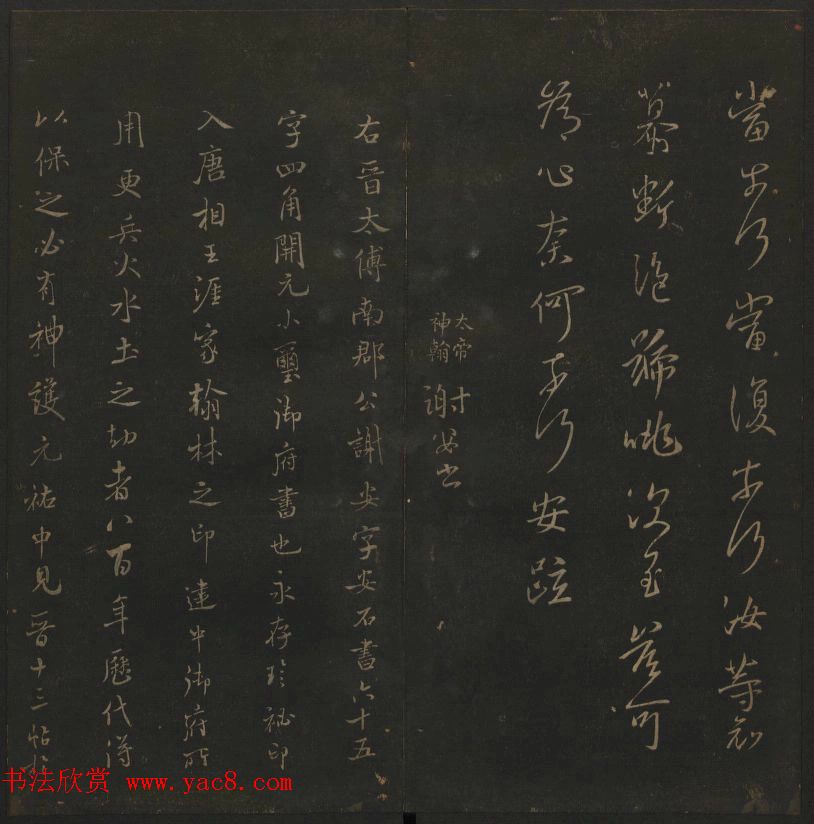 當奈何當復奈何汝等哀
慕斷絕號咷深至豈可
為心奈何奈何安疏
太帝
神翰
謝安書
右晉太傅南郡公謝安字安石書六十五
字四角開元小璽御府書也永存珍祕印
入唐相王涯家翰林之印建中御府所
用更兵火水土之劫者八百年歷代得
以保之必有神護元祐中見晉十三帖於
书法欣赏 www.yac8.com